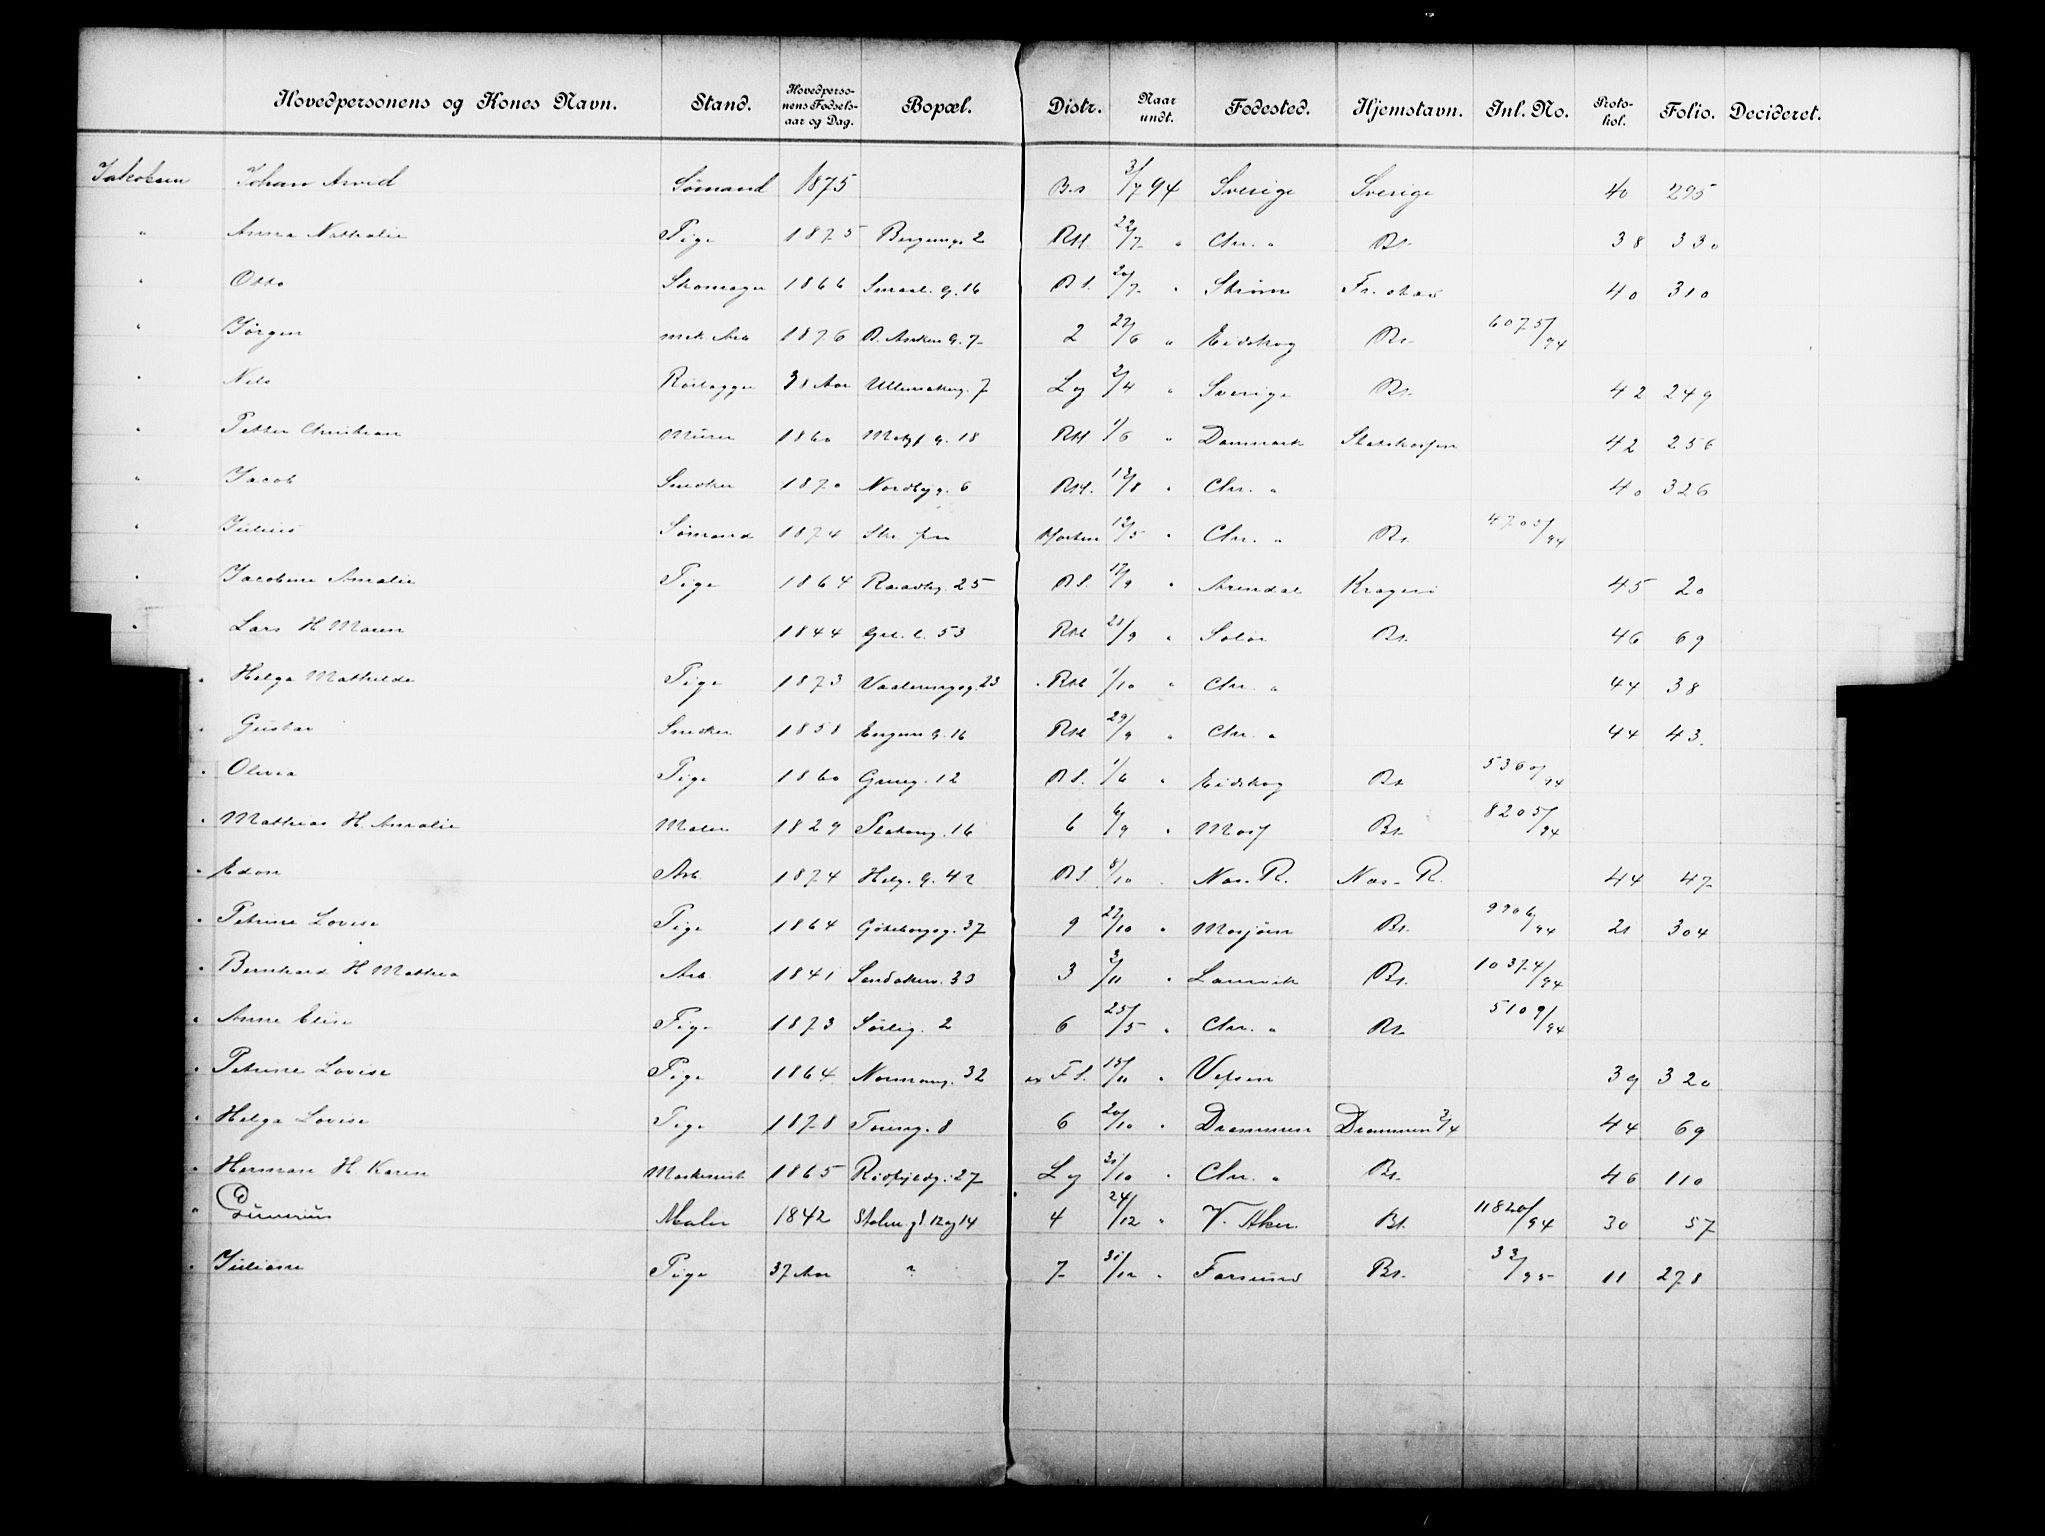 Hovedpersonens og Kones Navn. Stand. Hovedpersonens Fødselsaar og Dag. Bopæl. Distr. Naar undt. Fødested. Hjemstavn. Inl. No. Protokol. Folio. Decideret.
Jakobsen Johan Arvid Sömand 1875 3/7 94 Sverige Sverige 40 295
" Anna Nathalie Pige 1875 2 RH 22/7 " Chr. " Bt. 38 330
" Otto Skomager 1866 Smaal. g. 16 B S. 20/7 " Fr. stad 40 310
" Jørgen mek. Arb 1876 2 22/6 " Eidskog Bt. 6075/94
" Nils 38 Aar Ullensakerg. 7 Lg 2/4 " Sverige Bt. 42 249
" Petter Christian Murer 1860 18 RH 1/6 " Danmark 42 256
" Jacob Snedker 1870 Nordbyg. 6 RH. 13/8 " Chr. " 40 326
" Julius Sömand 1874 Horten 12/5 " Chr. " Bt. 4705/94
" Jacobine Amalie Pige 1864 25 B S. 17/9 " Arendal Kragerö 45 20
" Lars H Maren 1844 Grl. l. 53 RH 21/9 " Solör Bt. 46 69
" Helga Mathilde Pige 1873 Vaalerengag. 23 RH 1/10 " Chr. " 44 38
" Gustav Snedker 1858 16 RH 29/9 " Chr. " 44 43.
" Olivia Pige 1860 Grueg. 12 B S. 1/6 " Eidskog Bt 5360/94
" Mathias H. Amalie Maler 1829 16 6 6/9 " Moss Bt. 8205/94
" Edon Arb. 1874 Helg. g. 42 B S. 8/10 " Nes. R. Nes. R. 44 47
" Petrine Lovise Pige 1864 Göteborgsg. 37 9 22/10 " Mosjöen Bt. 9906/94 21 304
" Bernhard H Mathea Arb. 1841 Sandakerv. 33 3 3/11 " Laurvik Bt. 10374/94
" Anne Elise Pige 1873 Sörlig. 2 6 25/5 " Chr. " Bt. 5109/94
" Petrine Lovise Pige 1864 Normansg. 32 F S. 15/11 " Vefsen 39 320
" Helga Lovise Pige 1878 8 6 20/10 " Drammen Drammen 3/4 44 69
" Herman H. Karen Maskinist 1865 Rödfyldg. 27 Lg 31/10 " Chr. " Bt. 46 110
" Gunerius Maler 1842 Stolm gd. 12 og 14 4 24/12 " V. Aker Bt. 11820/94 30 57
" Juliane Pige 37 Aar ? 7 31/12 " Farsund Bt. 33/95 11 278